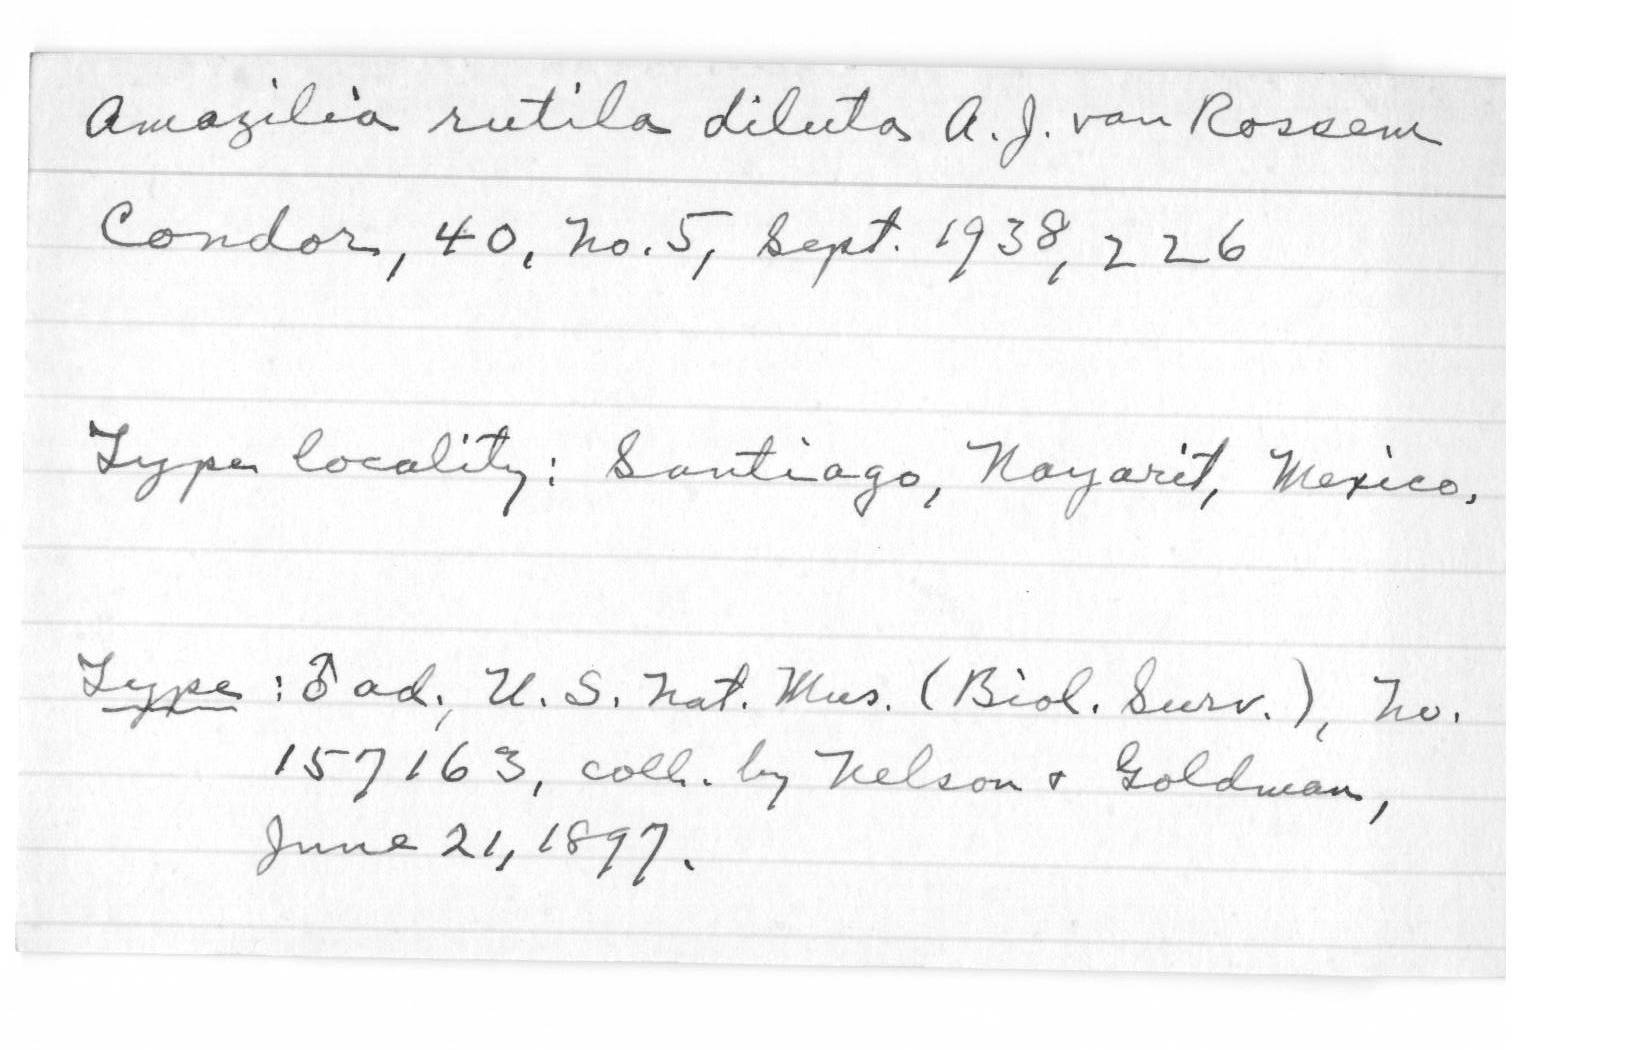 Amazilia rutila diluta A. J. van Rossem
Condor, 40, no. 5, Sept. 1938, 226
Type locality: Santiago, Nayarit, Mexico.
Type: ♂ ad., U. S. Nat. Mus. (Biol. Surv.), no.
157163, coll. by Nelson & Goldman,
June 21, 1897.